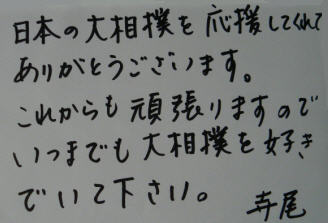 日本の大相撲を応援してくれて
ありがとうございます。
これからも頑張りますので
いつまでも大相撲を好き
でいて下さい。
寺尾